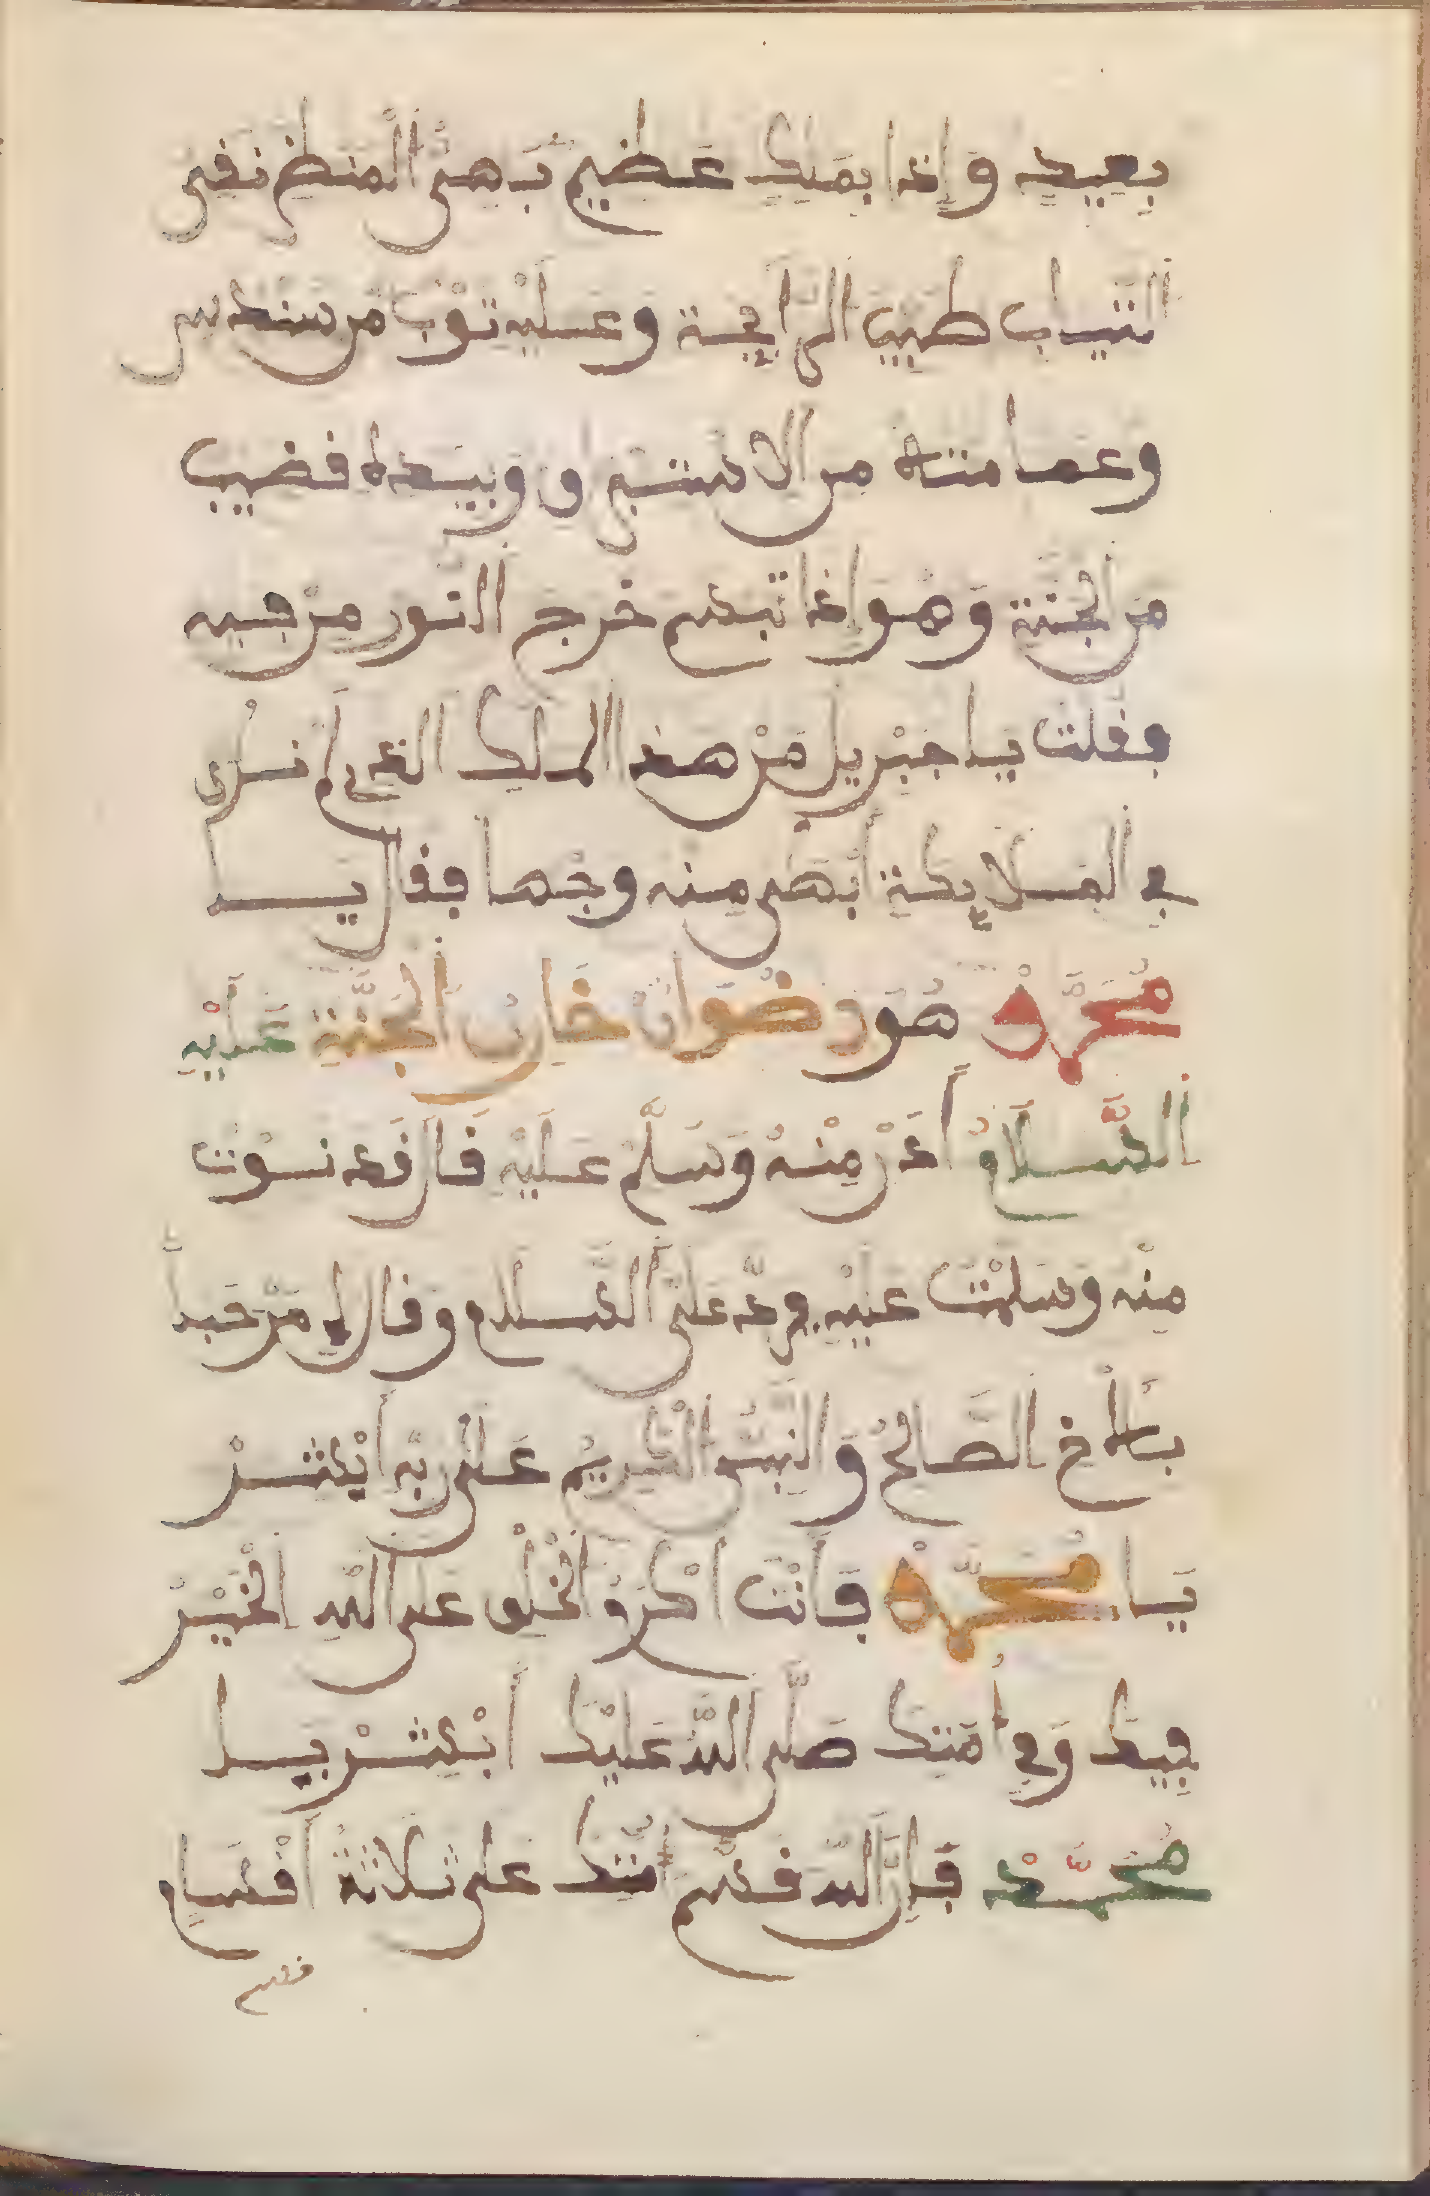 بعيد وإذا بملك عظيم بهي المنظر نفي
الثياب طيب الرايحة وعليه ثوب من سندس
وعمامته من الاستبرا وو بيده فضيب
من الجنة وهو إذا تبسم خرج النور من فيه
ففلت يا جبريل من هذا الملك الذي لم نرى
في الملايكة أبهى منه وجها ففال يا
محمد هو رضوان خازن الجنة عليه
السلام أدن منه وسلم عليه فال فدنوت
منه وسلمت عليه فرد علي السلام وفال لي مرحبا
بالأخ الصالح والنبي الكريم على ربه أبشر
يا محمد فأنت أكرم الخلو على الله الخير
فيك وفي أمتك صلى الله عليك أبشر يا
محمد فإن الله فسم أمتك على ثلاثة أفسام
فسم